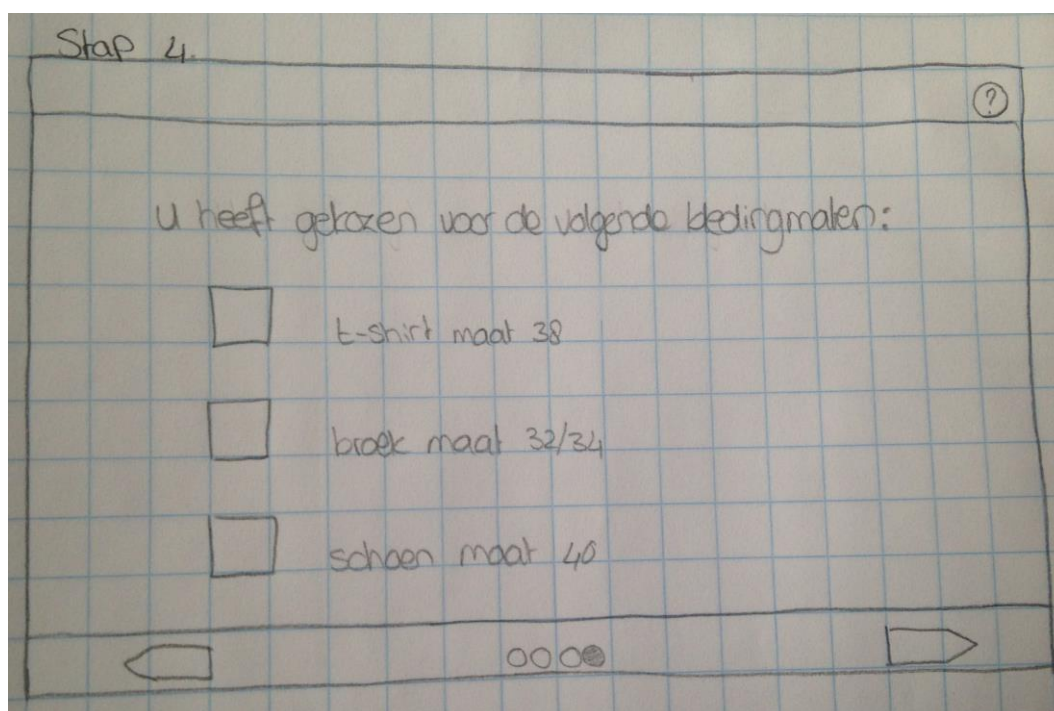 Stap 4.
?
U heeft gekozen voor de volgende kledingmaten:
t-shirt maat 38
broek maat 32/34
schoen maat 40